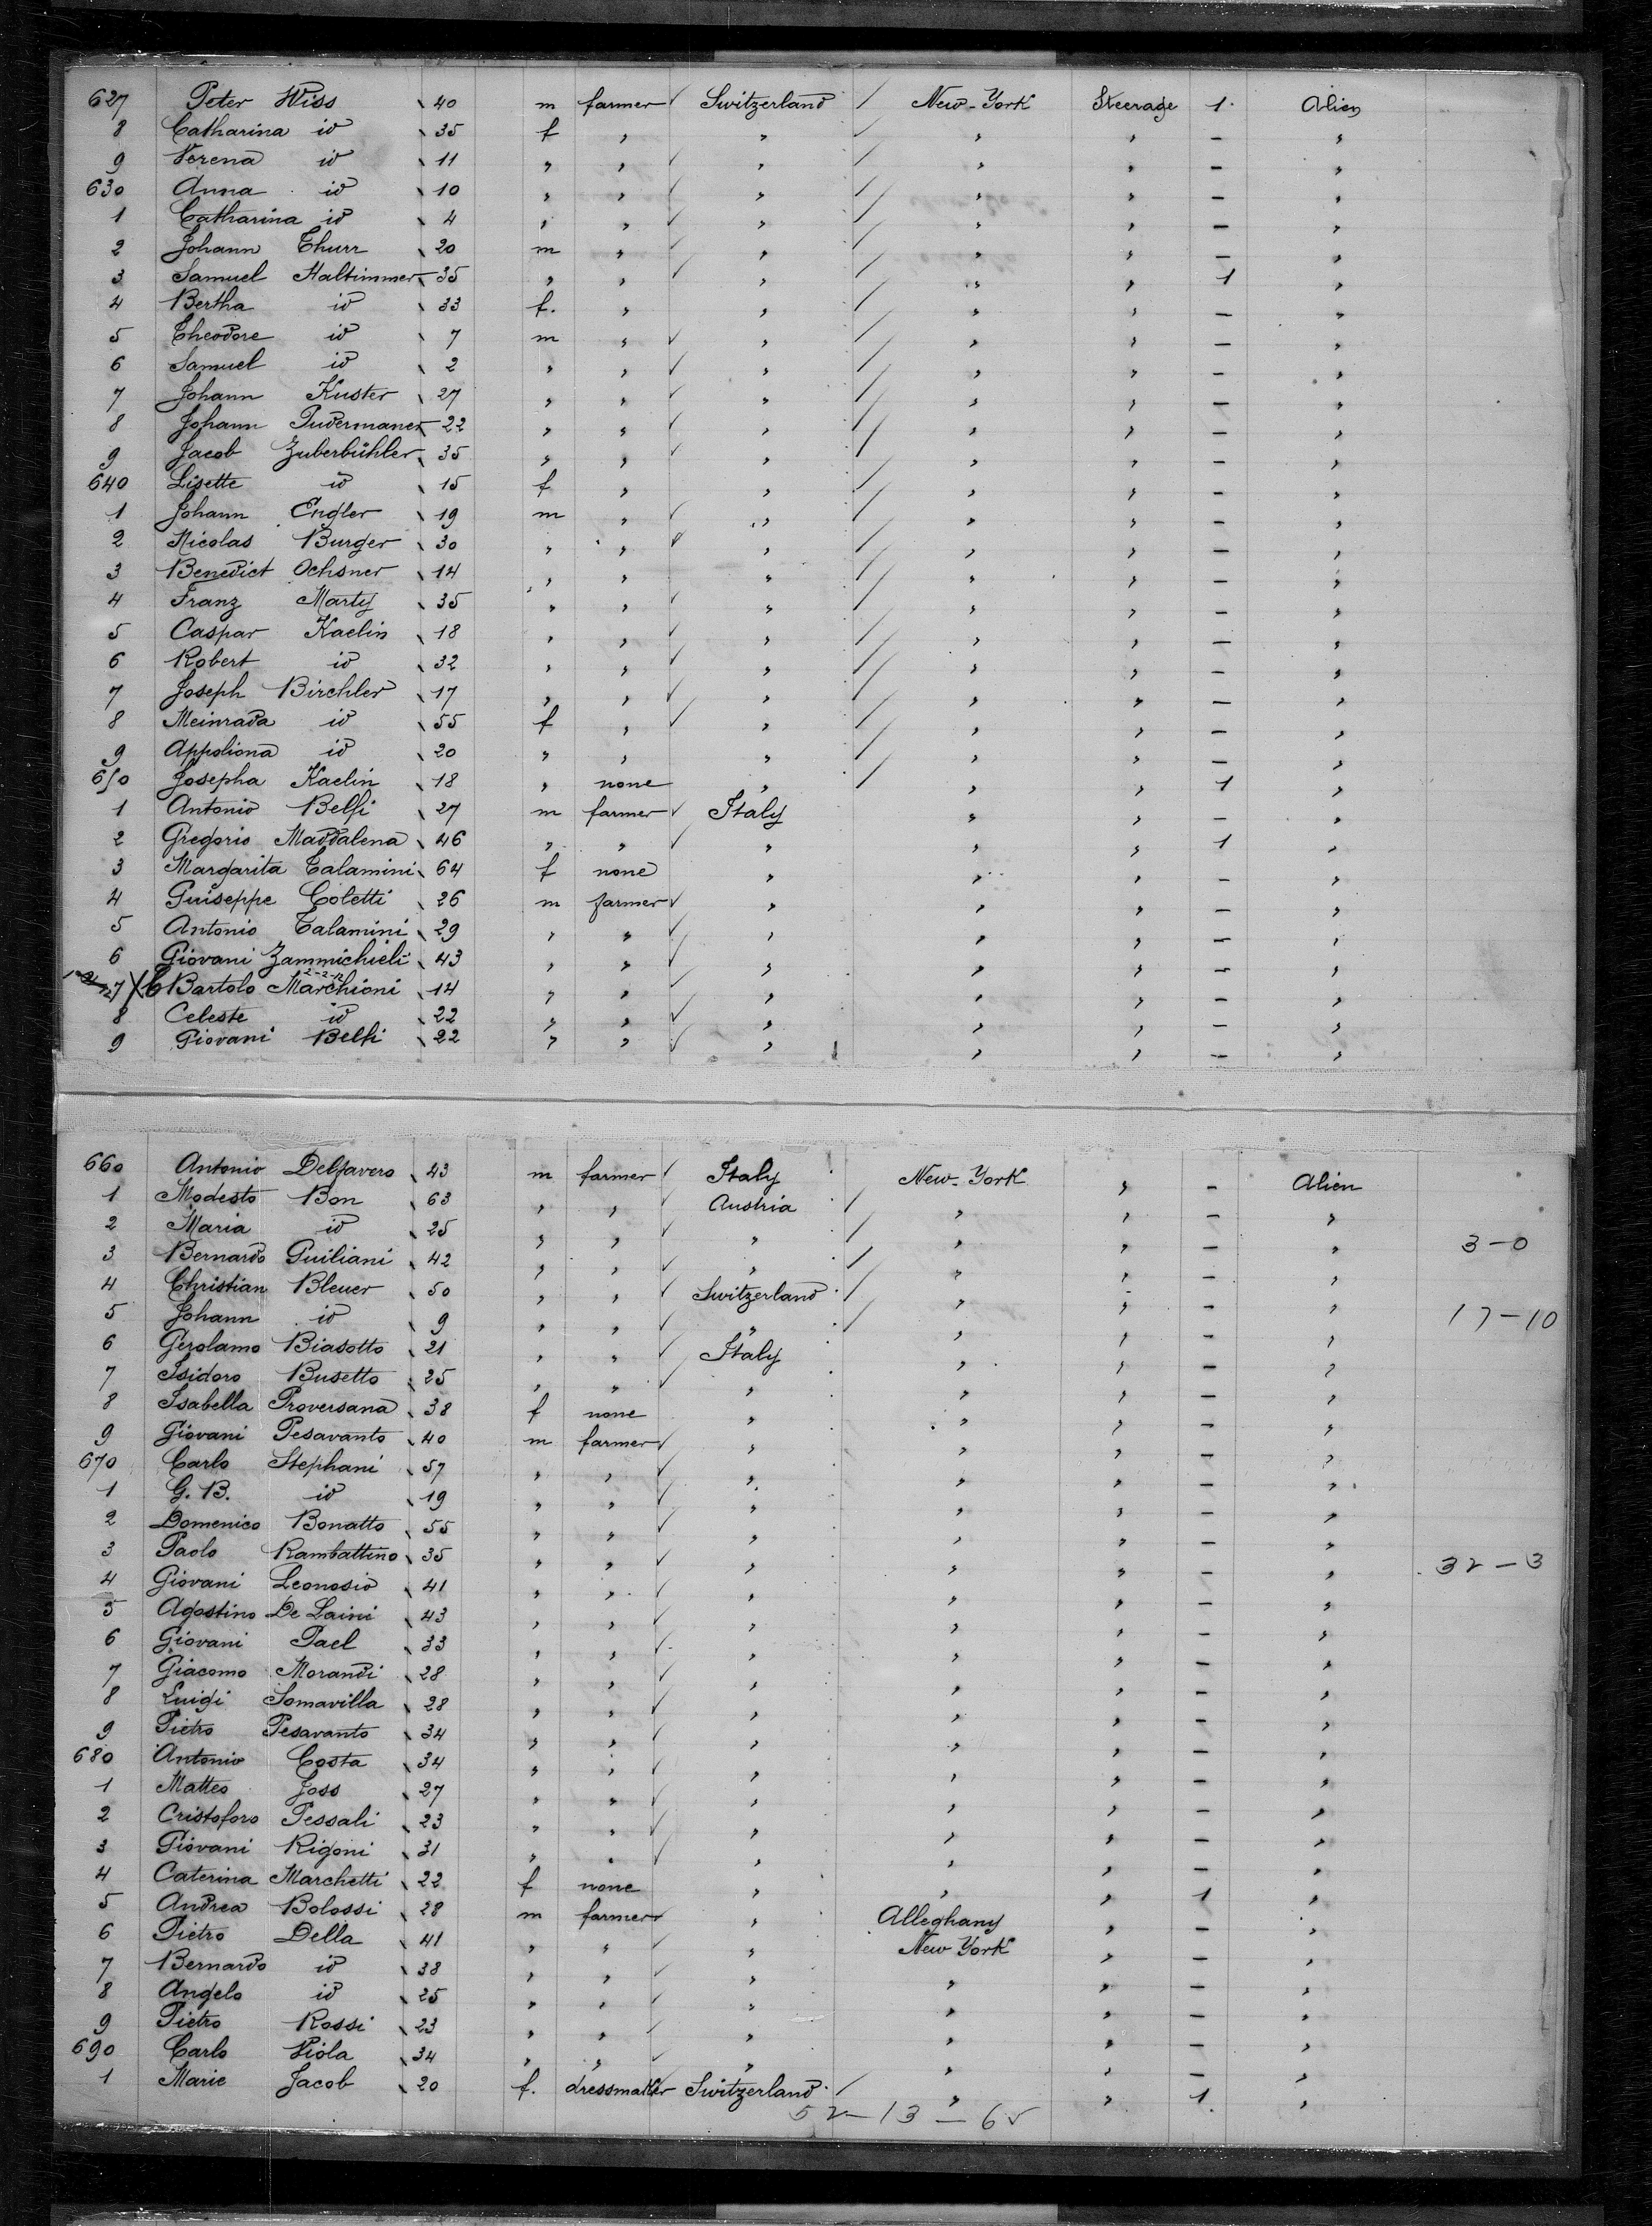 627 Peter Wiss 40 m farmer Switzerland New-York Steerage 1 Alien
8 Catharina id 35 f " " " " - "
9 Verena id 11 " " " " " - "
630 Anna id 10 " " " " " - "
1 Catharina id 4 " " " " " - "
2 Johann Thurr 20 m " " " " - "
3 Samuel Haltimmer 35 " " " " " 1 "
4 Bertha id 33 f. " " " " - "
5 Theodore id 7 m " " " " - "
6 Samuel id 2 " " " " " - "
7 Johann Kuster 27 " " " " " - "
8 Johann Pudermaner 22 " " " " " - "
9 Jacob Zuberbühler 35 " " " " " - "
640 Lisette id 15 f " " " " - "
1 Johann Engler 19 m " " " " - "
2 Nicolas Burger 30 " " " " " - "
3 Benedict Ochsner 14 " " " " " - "
4 Franz Marty 35 " " " " " - "
5 Caspar Kaelin 18 " " " " " - "
6 Robert id 32 " " " " " - "
7 Joseph Birchler 17 " " " " " - "
8 Meinrada id 55 f " " " " - "
9 Appoliona id 20 " " " " " - "
650 Josepha Kaelin 18 " none " " " 1 "
1 Antonio Belfi 27 m farmer Italy " " - "
2 Gregorio Maddalena 46 " " " " " 1 "
3 Margarita Talamini 64 f none " " " - "
4 Guiseppe Coletti 26 m farmer " " " - "
5 Antonio Talamini 29 " " " " " - "
6 Giovani Zammichieli 43 " " " " " - "
7 Bartolo Marchioni 14 " " " " " - "
8 Celeste id 22 " " " " " - "
9 Giovani Belfi 22 " " " " " - "
660 Antonio Delfavero 43 m farmer Italy New-York " - Alien
1 Modesto Bon 63 " " Austria " " - "
2 Maria id 25 " " " " " - " 3-0
3 Bernardo Guiliani 42 " " " " " - "
4 Christian Bleuer 50 " " Switzerland " " - "
5 Johann id 9 " " " " " - " 17-10
6 Gerolamo Biasotto 21 " " Italy " " - "
7 Isidoro Busetto 25 " " " " " - "
8 Isabella Proversana 38 f none " " " - "
9 Giovani Pesavanto 40 m farmer " " " - "
670 Carlo Stephani 57 " " " " " - "
1 G. B. id 19 " " " " " - "
2 Domenico Bonatto 55 " " " " " - "
3 Paolo Rambattino 35 " " " " " - " 32-3
4 Giovani Leonosio 41 " " " " " - "
5 Agostino De Laini 43 " " " " " - "
6 Giovani Pael 33 " " " " " - "
7 Giacomo Morandi 28 " " " " " - "
8 Luigi Somavilla 28 " " " " " - "
9 Pietro Pesavanto 34 " " " " " - "
680 Antonio Costa 34 " " " " " - "
1 Matteo Joss 27 " " " " " - "
2 Cristoforo Pessali 23 " " " " " - "
3 Giovani Rigoni 31 " " " " " - "
4 Caterina Marchetti 22 f none " " " 1 "
5 Andrea Bolossi 28 m farmer " Alleghany " - "
6 Pietro Della 41 " " " New York " - "
7 Bernardo id 38 " " " " " - "
8 Angelo id 25 " " " " " - "
9 Pietro Rossi 23 " " " " " - "
690 Carlo Viola 34 " " " " " - "
1 Marie Jacob 20 f. dressmaker Switzerland " " 1. "
52-13-65